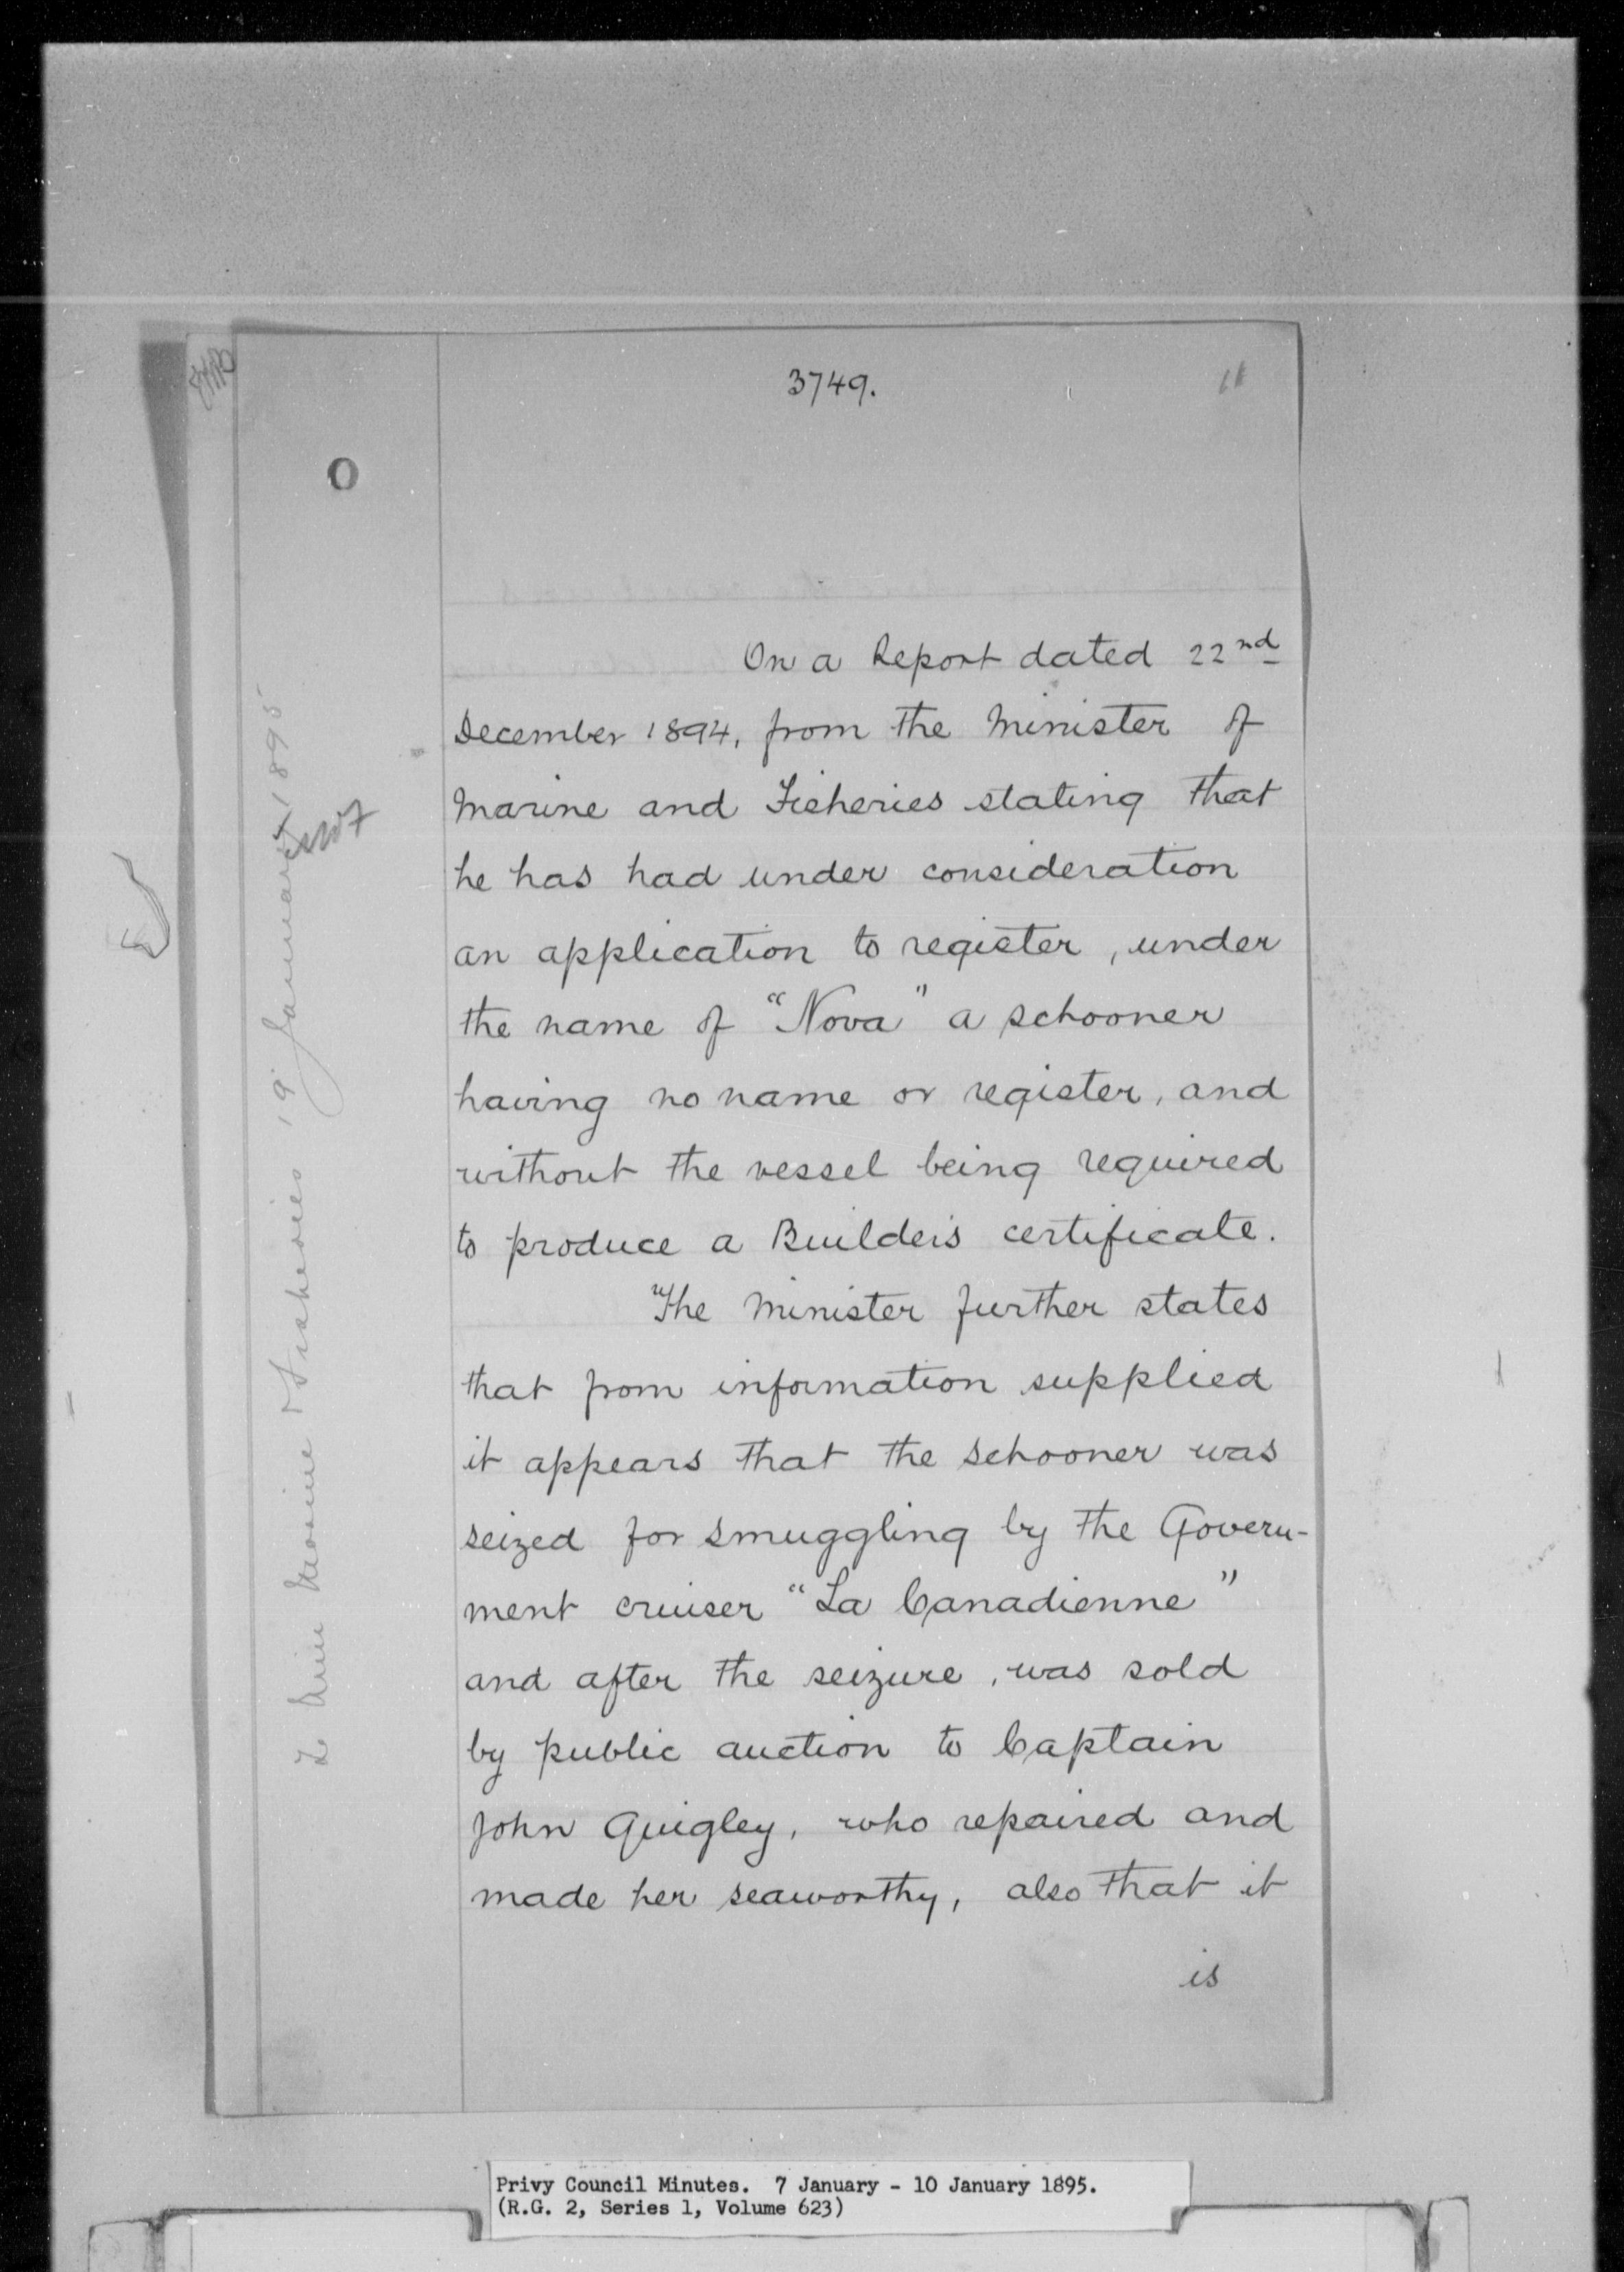 3749.
11
On a Report dated 22nd
December 1894, from the Minister of
Marine and Fisheries stating that
he has had under consideration
an application to register, under
the name of "Nova" a schooner
having no name or register, and
without the vessel being required
to produce a Builder's certificate.
The Minister further states
that from information supplied
it appears that the schooner was
seized for smuggling by the Govern-
ment cruiser "La Canadienne"
and after the seizure, was sold
by public auction to Captain
John Quigley, who repaired and
made her seaworthy, also that it
is
Min Marine & Fisheries 19 January 1895
Privy Council Minutes. 7 January - 10 January 1895.
(R.G. 2, Series 1, Volume 623)